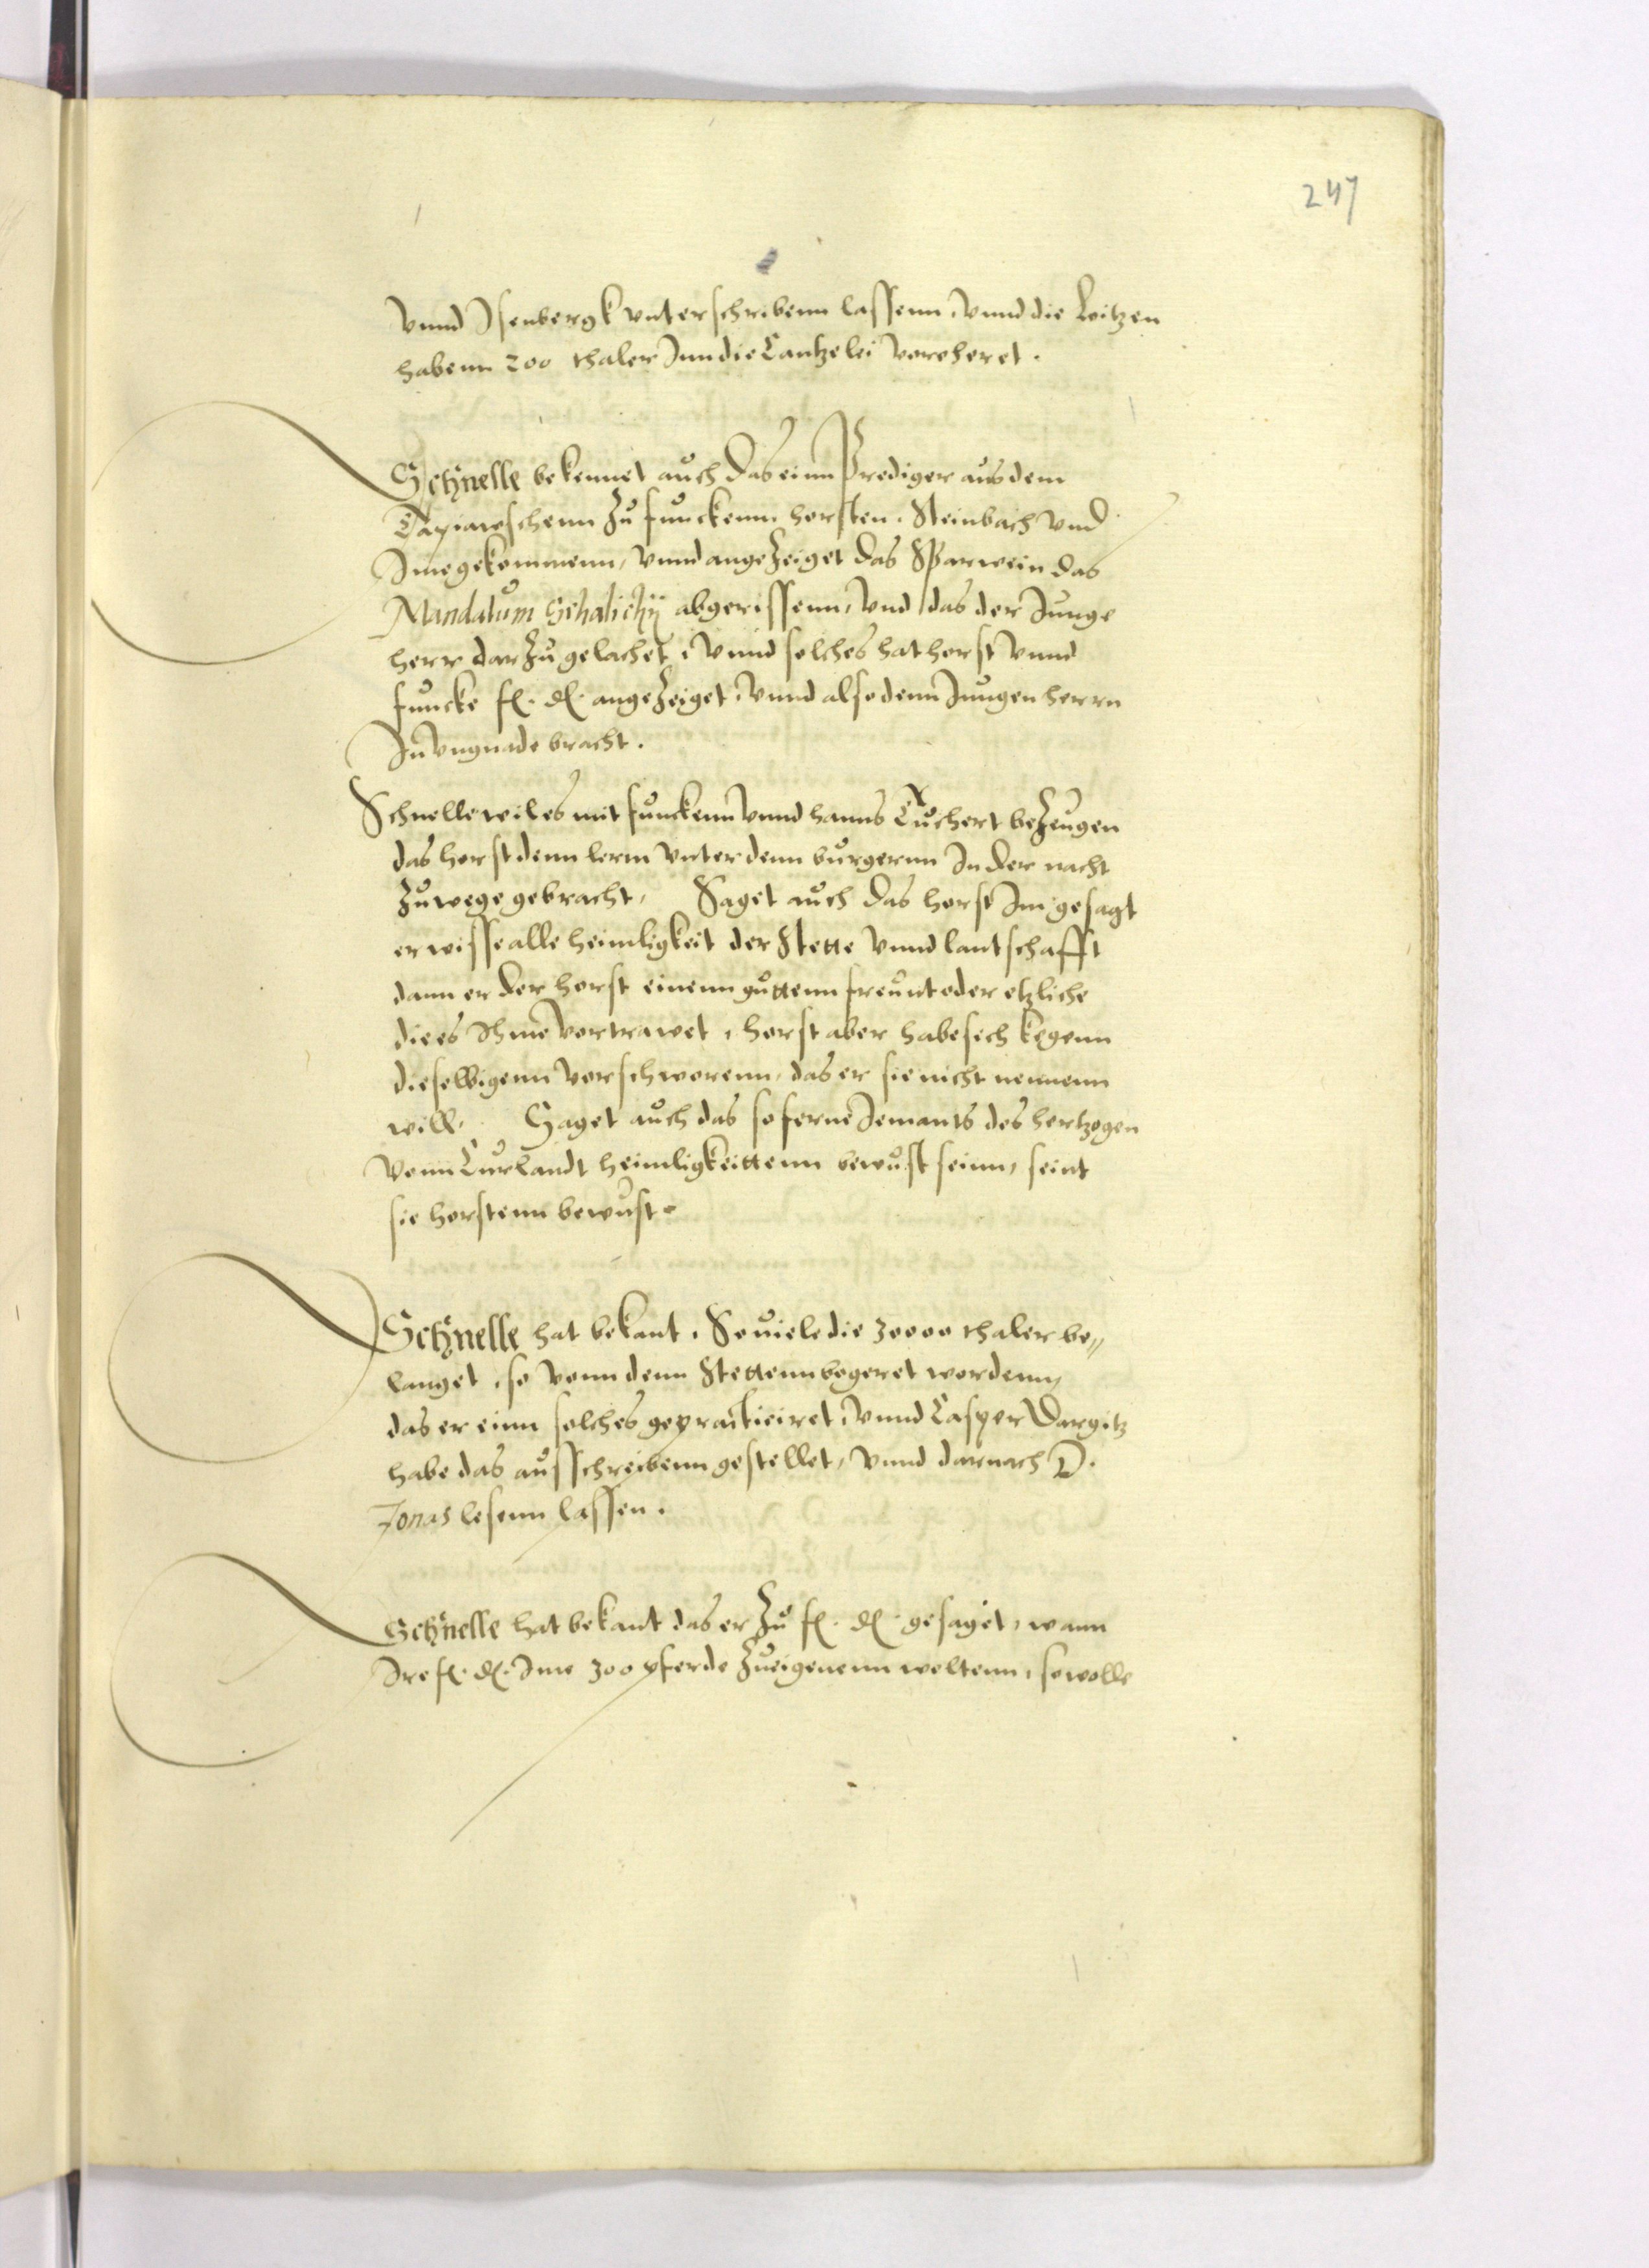 247
vnnd Isenbergk vnterschribenn lassenn, vnnd die Loitzen
habenn 200 thaler Inn die Cantzelei vorehret.
Schnelle bekennet auch das einn Prediger aus dem
Tapiawschenn zu funckenn, horsten, Steinbach vnd
Ime gekommenn, vnnd angezeiget das Sparwein das
Mandatum Schalichij abgerissenn, vnd das der Junge
herr darzu gelachet, vnnd solches hat horst vnnd
funcke f. d. angezeiget, vnnd also denn Jungen herrn
In vngnade bracht.
Schnelle wil es mit funckenn vnnd hanns Tuchert bezeugen
das horst denn lerm vnter denn burgernn In der nacht
zuwege gebracht, Saget auch das horst Im gesagt
er wisse alle heimligkeit der Stette vnnd lantschafft
dann er der horst einenn guttenn freunt oder etzliche
die es Ihme vortrawet, horst aber habe sich kegenn
dieselbigenn vorschworenn, das er sie nicht nennenn
will. Saget auch das so ferne Jemants des hertzogen
vonn Curlandt heimligkeittenn bewust seinn, seint
sie horstenn bewust.
Schnelle hat bekant, Souiele die 30000 thaler be„
langet, so vonn denn Stettenn begeret wordenn,
das er einn solches gepracticiret, vnnd Casper Dargitz
habe das ausschreibenn gestellet, vnnd darnach D.
Jonas lesenn lassen.
Schnelle hat bekant das er zu f. d. gesaget, wann
Ire f. d. Ime 300 pferde zueigenenn woltenn, so wolle